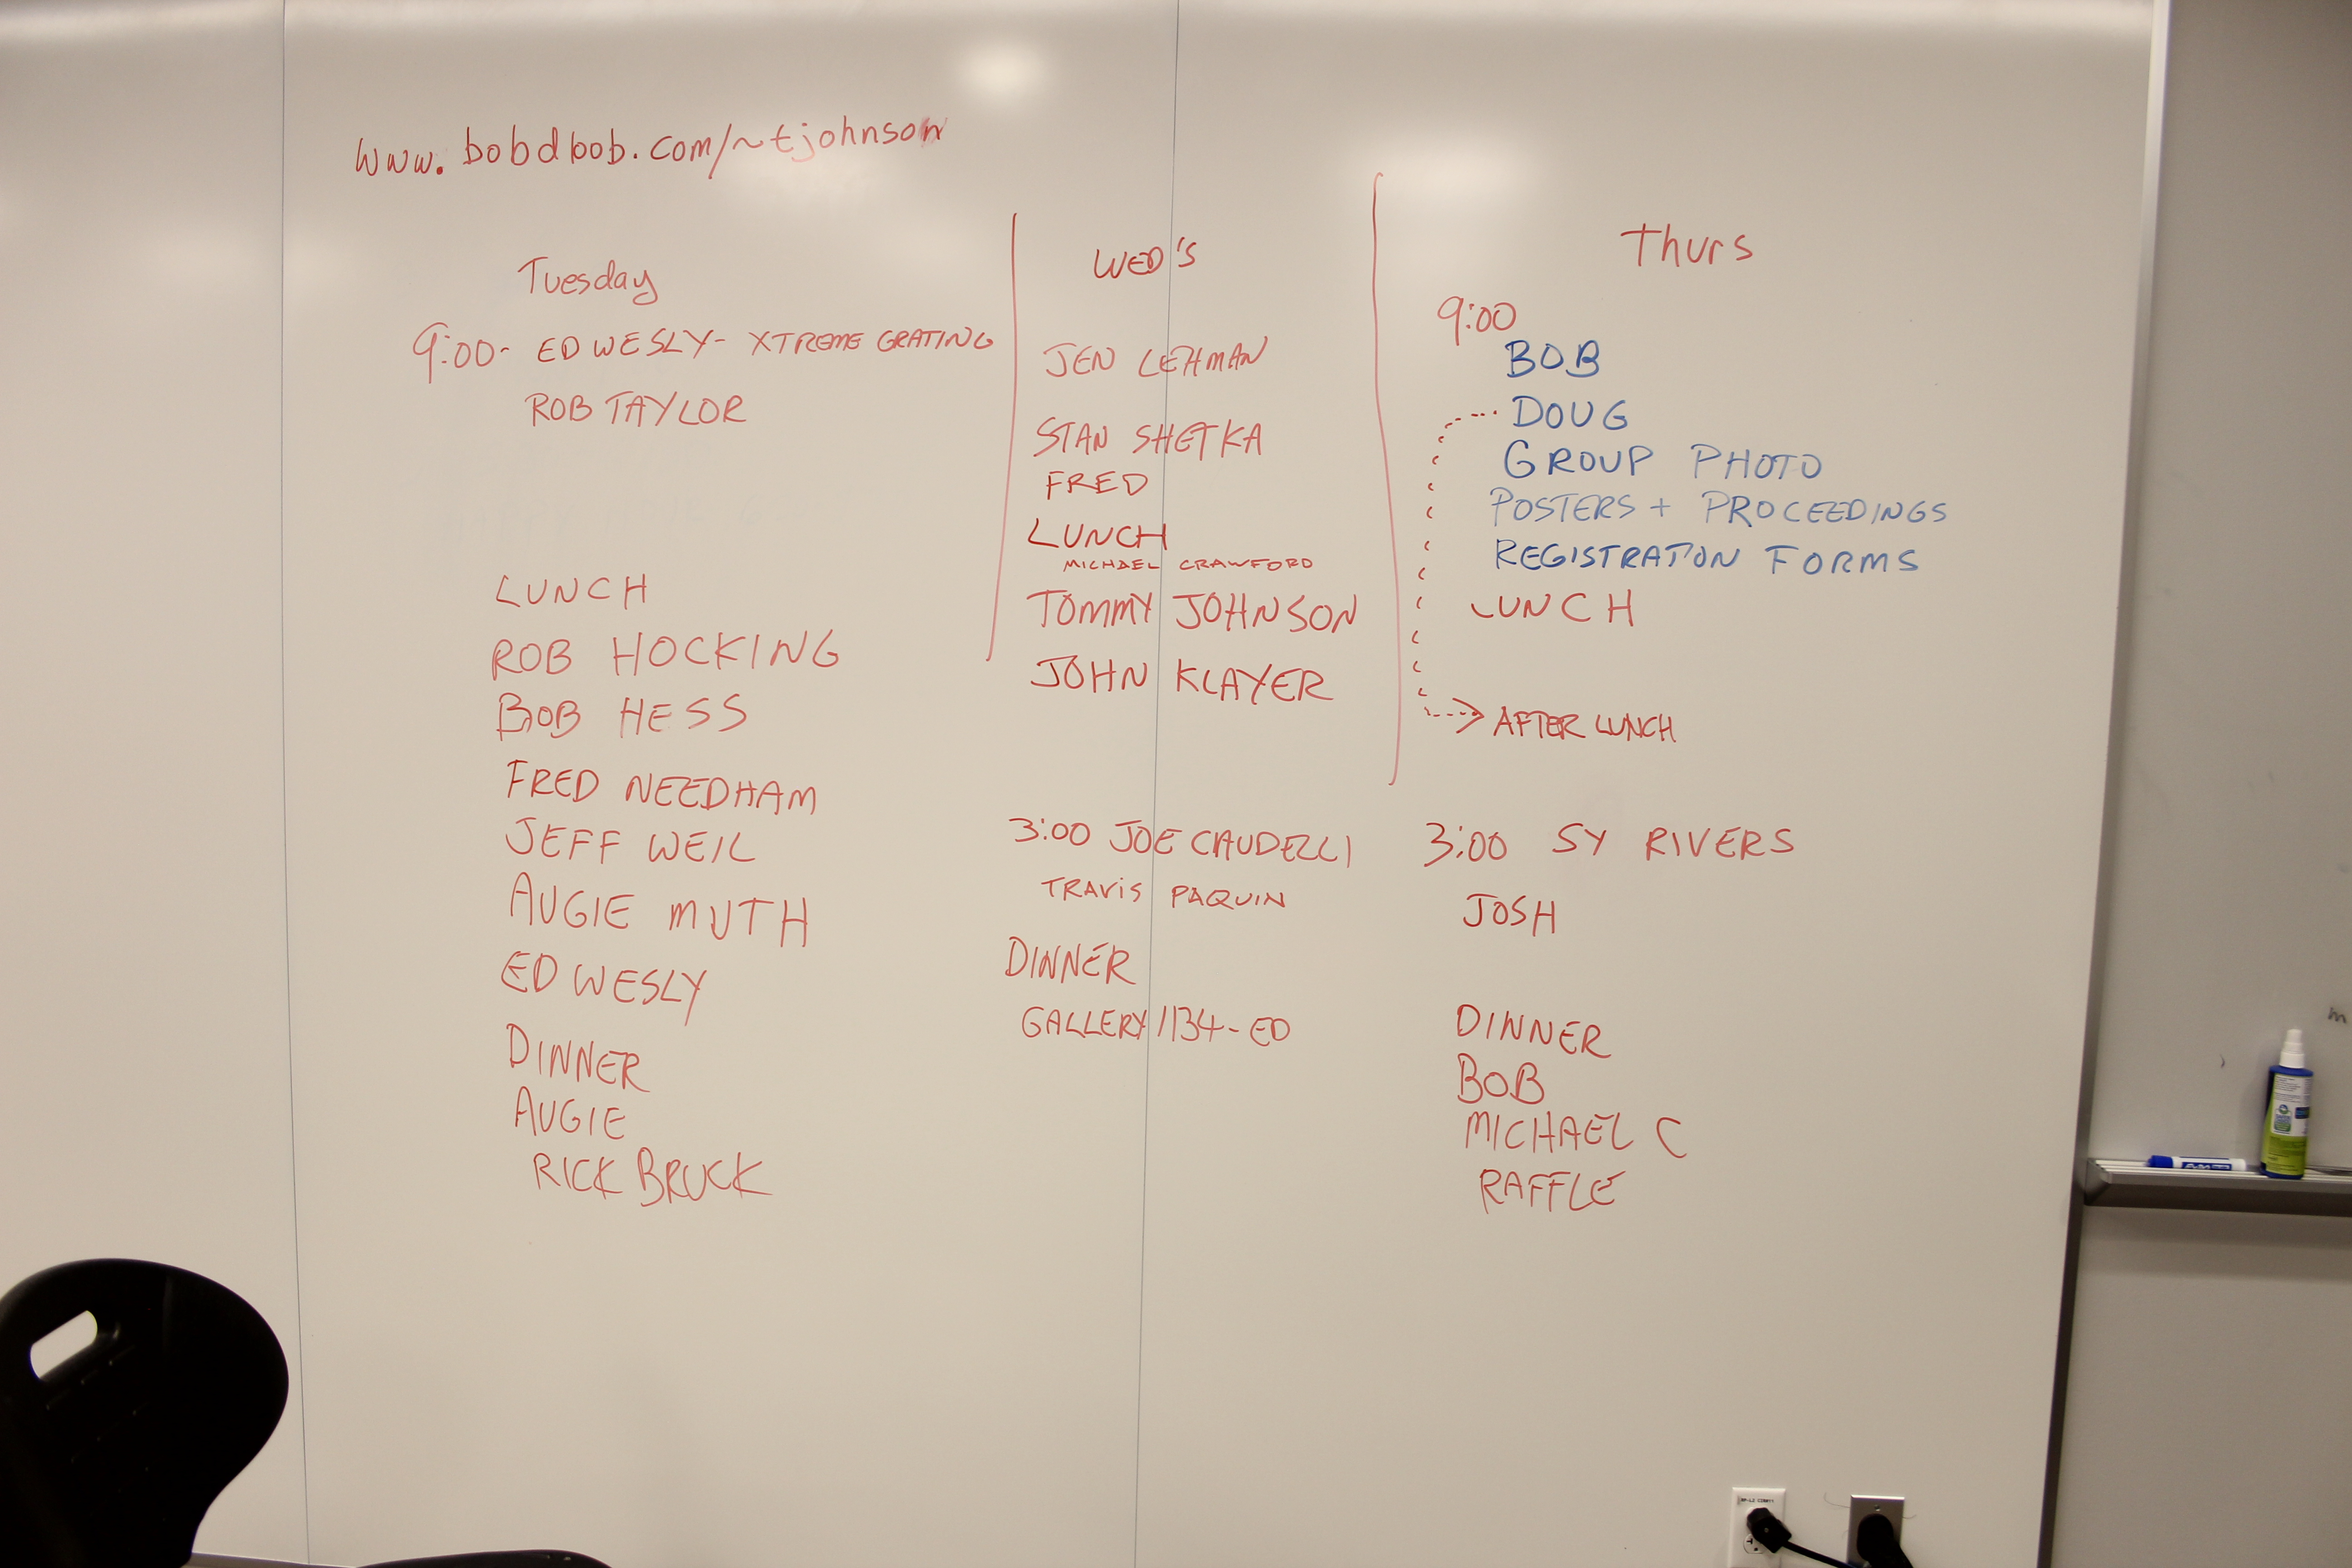 www.bobdbob.com/~tjohnson
Tuesday
9:00- ED WESLY- XTREME GRATING
ROB TAYLOR
LUNCH
ROB HOCKING
BOB HESS
FRED NEEDHAM
JEFF WEIL
AUGIE MUTH
ED WESLY
DINNER
AUGIE
RICK BRUCK
WED'S
JEN LEHMAN
STAN SHETKA
FRED
LUNCH
MICHAEL CRAWFORD
TOMMY JOHNSON
JOHN KLAYER
3:00 JOE CAUDELLI
TRAVIS PAQUIN
DINNER
GALLERY 1134- ED
Thurs
9:00
BOB
DOUG
GROUP PHOTO
POSTERS + PROCEEDINGS
REGISTRATION FORMS
LUNCH
AFTER LUNCH
3:00 SY RIVERS
JOSH
DINNER
BOB
MICHAEL C
RAFFLE